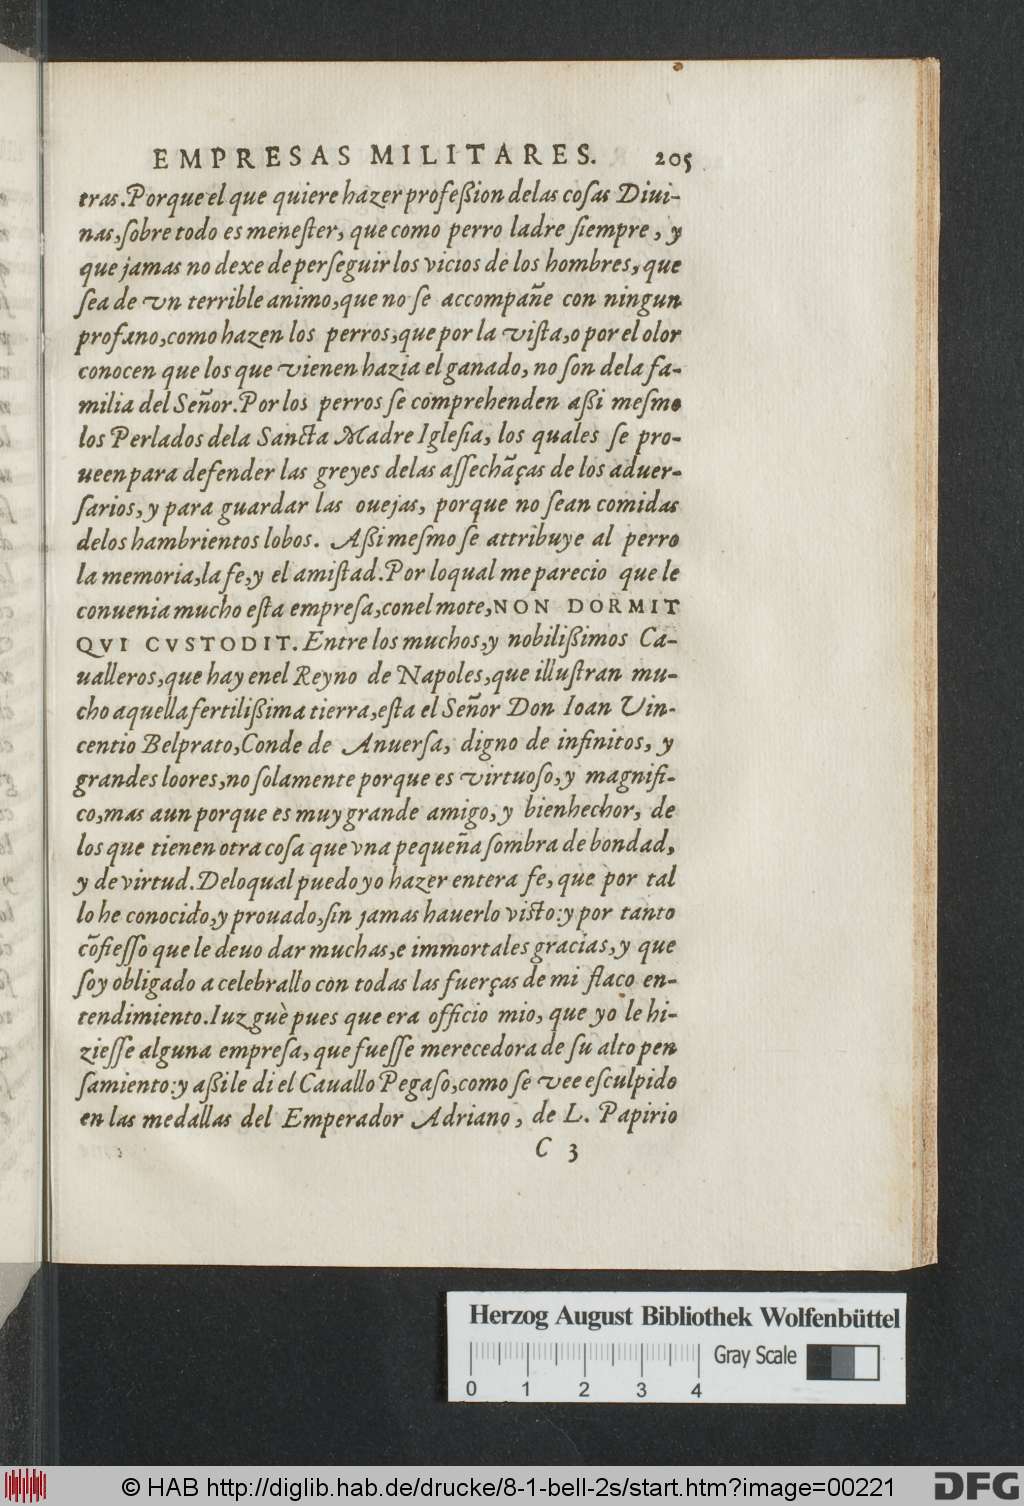 EMPRESAS MILITARES. 205
tras. Porque el que quiere hazer profeßion delas coſas Diui-
nas, ſobre todo es meneſter, que como perro ladre ſiempre, y
que jamas no dexe de perſeguir los vicios de los hombres, que
ſea de vn terrible animo, que no ſe accompañe con ningun
profano, como hazen los perros, que por la viſta, o por el olor
conocen que los que vienen hazia el ganado, no ſon dela fa-
milia del Señor. Por los perros ſe comprehenden aßi meſmo
los Perlados dela Sancta Madre Igleſia, los quales ſe pro-
ueen para defender las greyes delas aſſechãças de los aduer-
ſarios, y para guardar las ouejas, porque no ſean comidas
delos hambrientos lobos. Aßi meſmo ſe attribuye al perro
la memoria, la fe, y el amiſtad. Por loqual me parecio que le
conuenia mucho eſta empreſa, conel mote, NON DORMIT
QVI CVSTODIT. Entre los muchos, y nobilißimos Ca-
ualleros, que hay enel Reyno de Napoles, que illuſtran mu-
cho aquella fertilißima tierra, eſta el Señor Don Ioan Vin-
centio Belprato, Conde de Anuerſa, digno de infinitos, y
grandes loores, no ſolamente porque es virtuoſo, y magnifi-
co, mas aun porque es muy grande amigo, y bienhechor, de
los que tienen otra coſa que vna pequeña ſombra de bondad,
y de virtud. Deloqual puedo yo hazer entera fe, que por tal
lo he conocido, y prouado, ſin jamas hauerlo viſto: y por tanto
cõfieſſo que le deuo dar muchas, e immortales gracias, y que
ſoy obligado a celebrallo con todas las fuerças de mi flaco en-
tendimiento. Iuzguè pues que era officio mio, que yo le hi-
zieſſe alguna empreſa, que fueſſe merecedora de ſu alto pen
ſamiento: y aßi le di el Cauallo Pegaſo, como ſe vee eſculpido
en las medallas del Emperador Adriano, de L. Papirio
C 3
Herzog August Bibliothek Wolfenbüttel
Gray Scale
0 1 2 3 4
© HAB http://diglib.hab.de/drucke/8-1-bell-2s/start.htm?image=00221
DFG